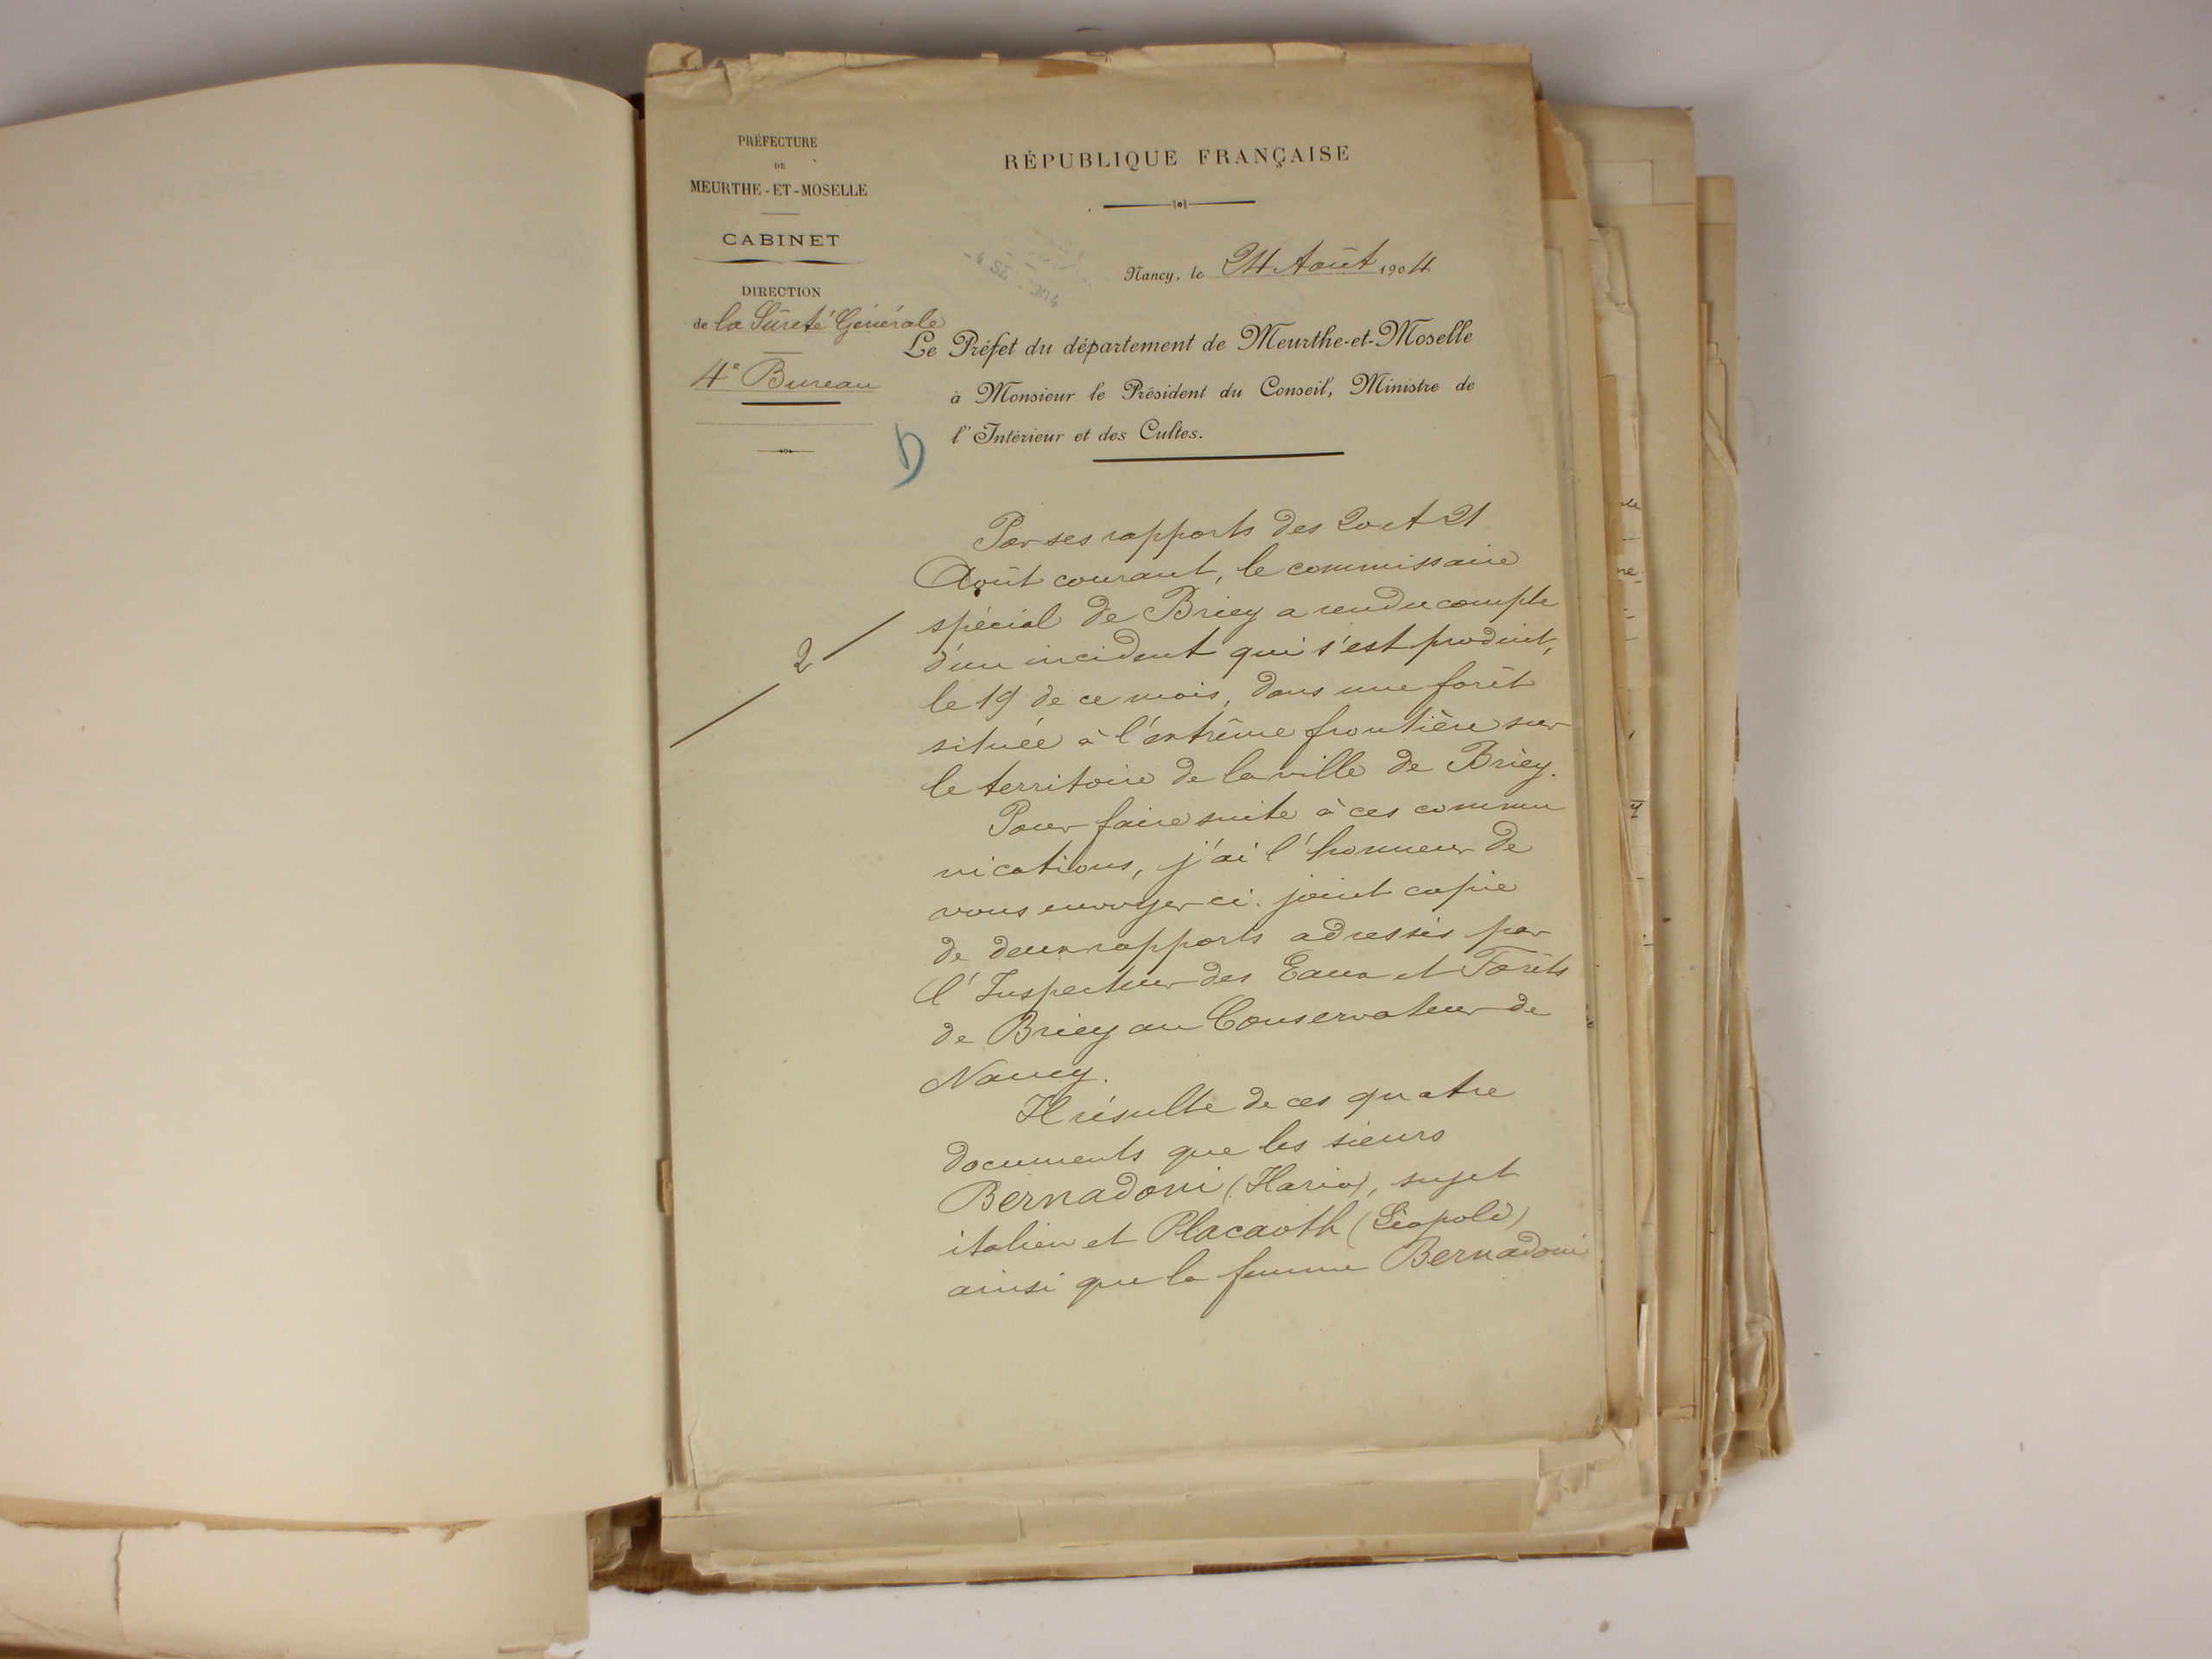 PRÉFECTURE
DE
MEURTHE-ET-MOSELLE
CABINET
DIRECTION
de la Sûreté Générale
4e Bureau
RÉPUBLIQUE FRANÇAISE
Nancy, le 24 Août 1904
Le Préfet du département de Meurthe-et-Moselle
à Monsieur le Président du Conseil, Ministre de
l'Intérieur et des Cultes.
2
Par ses rapports des 20 et 21
Août courant, le commissaire
spécial de Briey a rendu compte
d'un incident qui s'est produit,
le 19 de ce mois, dans une forêt
située à l'extrême frontière sur
le territoire de la ville de Briey.
Pour faire suite à ces commu
nications, j'ai l'honneur de
vous envoyer ci-joint copie
de deux rapports adressés par
l'Inspecteur des Eaux et Forêts
de Briey au Conservateur de
Nancy.
Il résulte de ces quatre
documents que les sieurs
Bernadoni, sujet
italien et Placaoth (Léopold)
ainsi que la femme Bernadoni